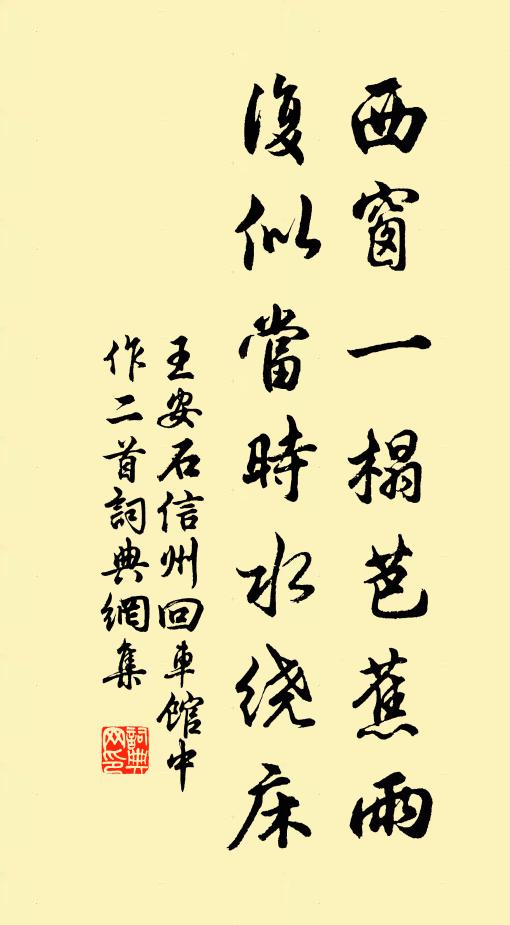 西窗一榻芭蕉雨
復似當時水绕床
王安石信州回車馆中
作二首詞典網集
詞典
网印